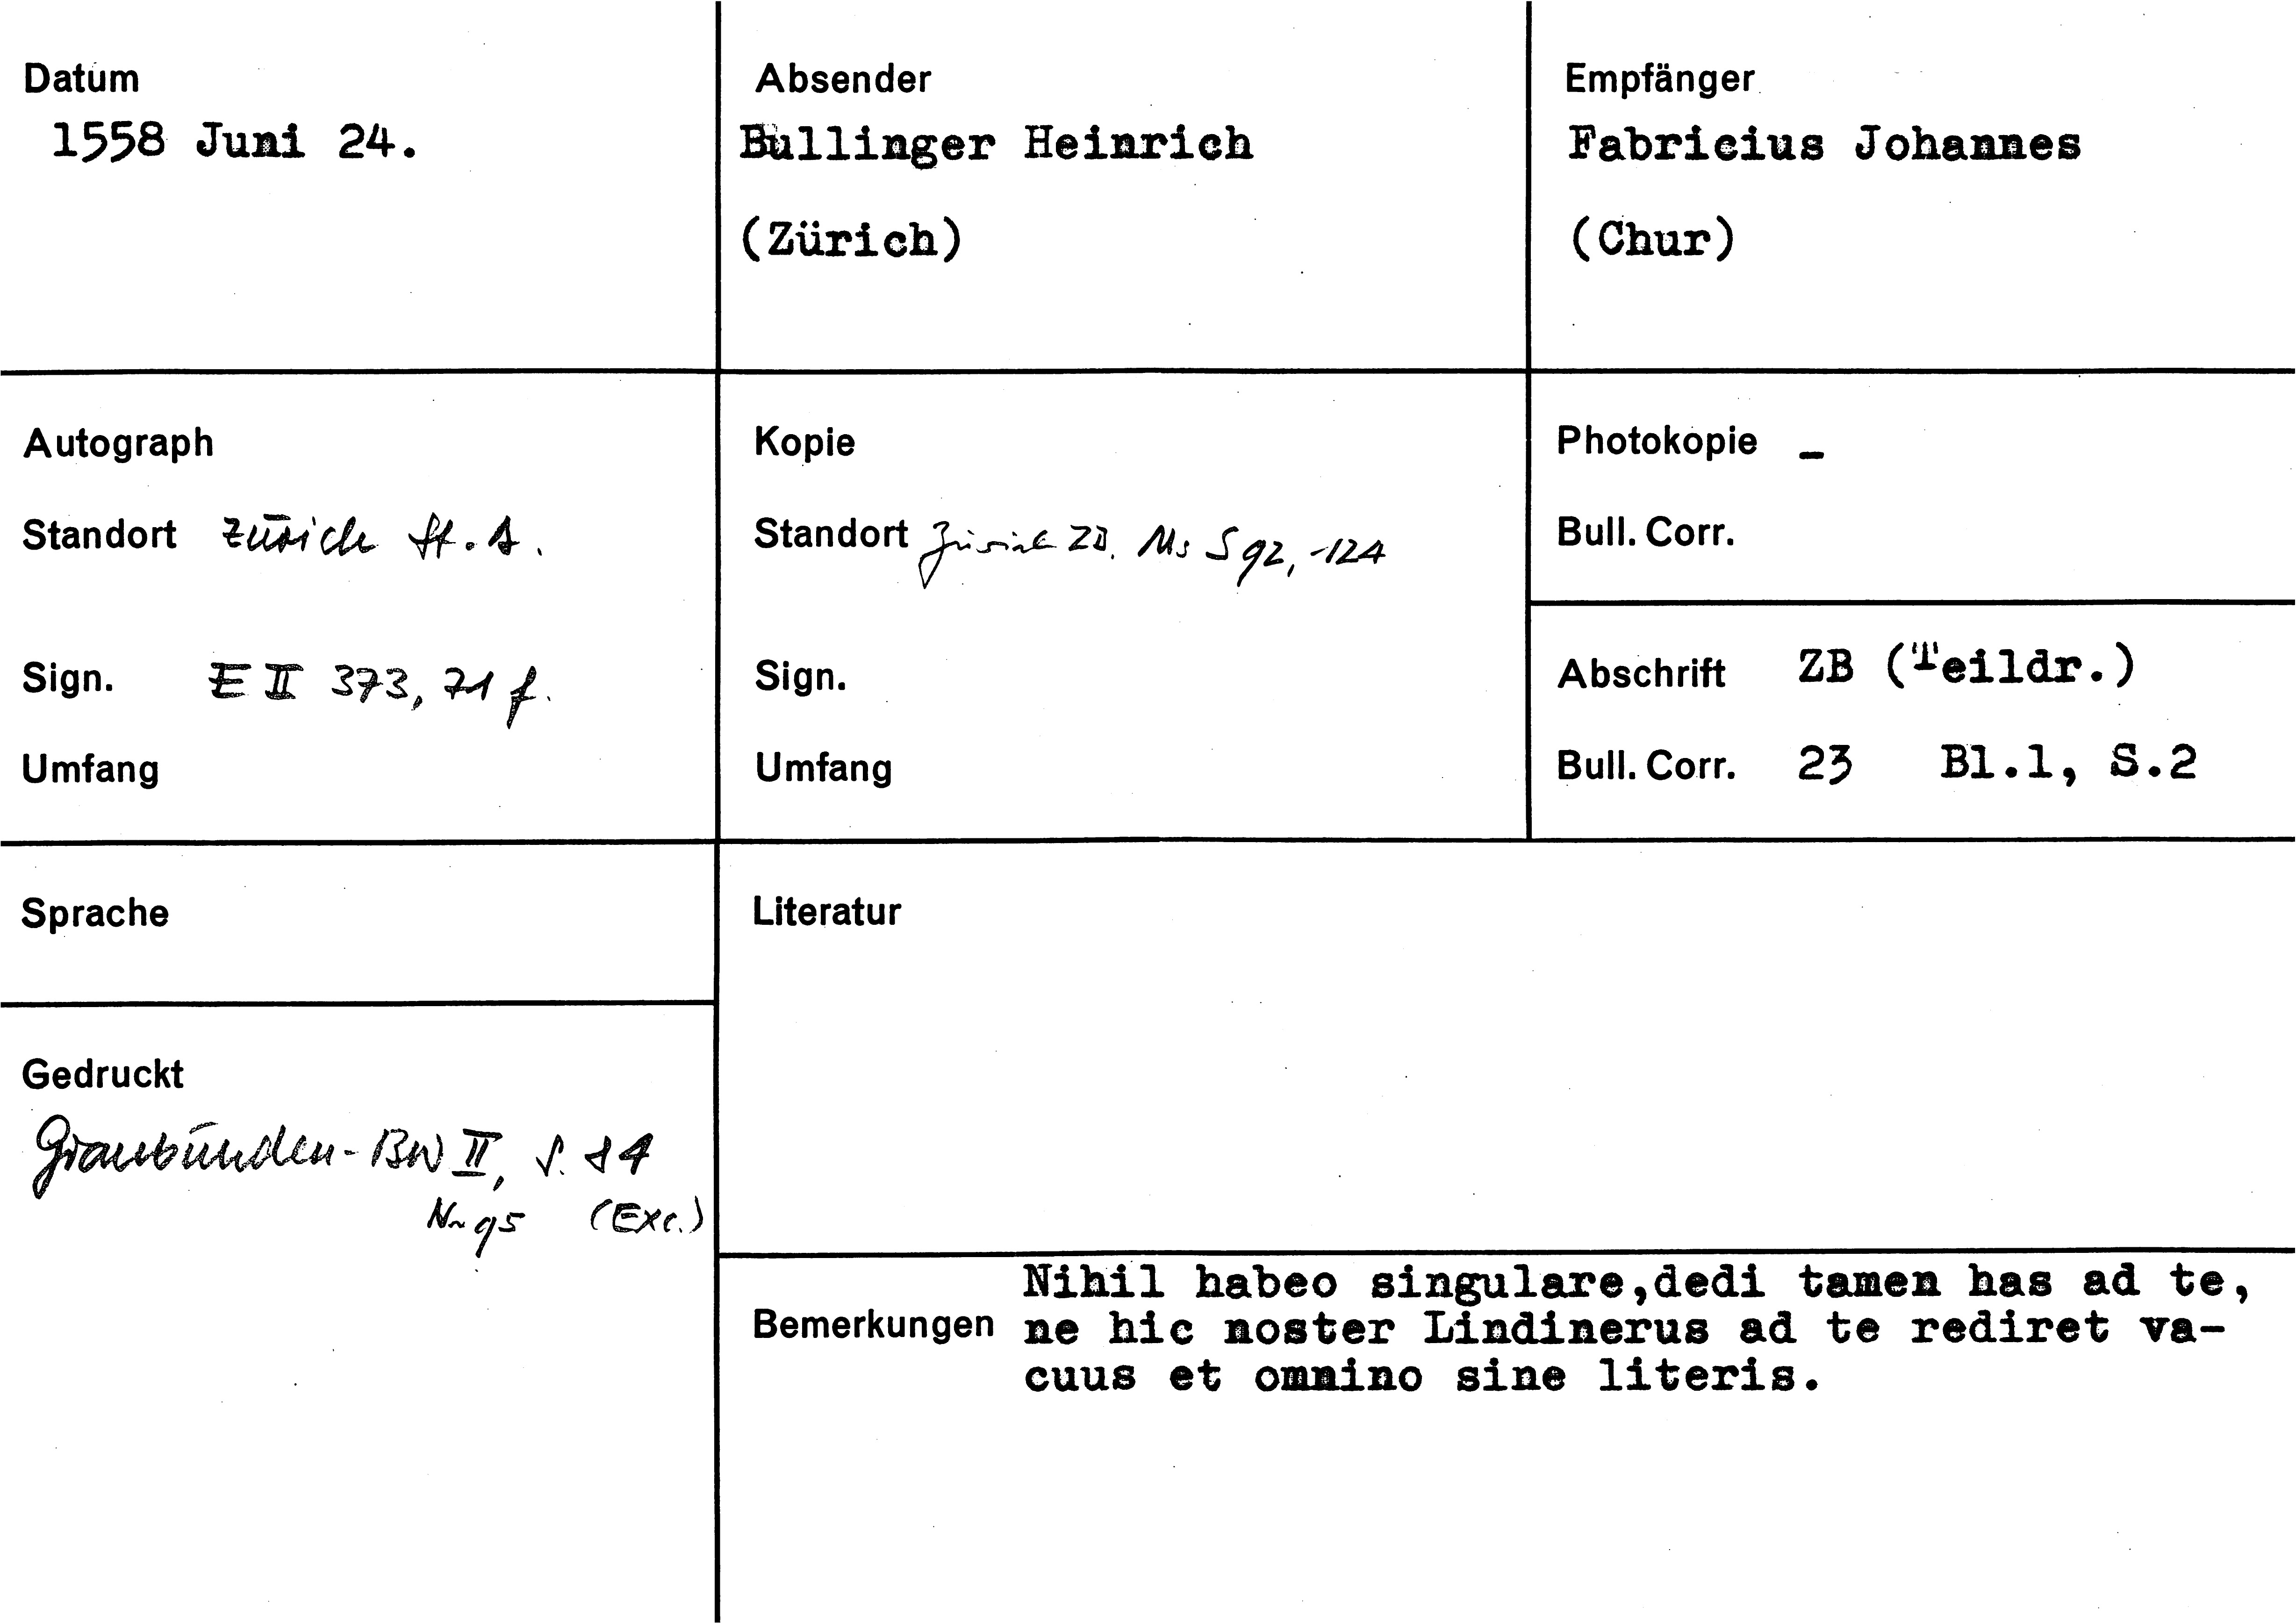 Datum
1558 Juni 24.
Absender
Bullinger Heinrich
(Zürich)
Empfänger
Fabricius Johannes
(Chur)
Autograph
Standort Zürich St.A.
Sign. E II 373, 71 f.
Umfang
Kopie
Standort Zürich ZB. Ms S 92, 124
Sign.
Umfang
Photokopie –
Bull. Corr.
Abschrift ZB (Teildr.)
Bull. Corr. 23 Bl.1, S.2
Sprache
Literatur
Gedruckt
Graubünden-BW II, S. 84
Nr 95 (Exc.)
Bemerkungen
Nihil habeo singulare,dedi tamen has ad te,
ne hic noster Lindinerus ad te rediret va-
cuus et omnino sine literis.